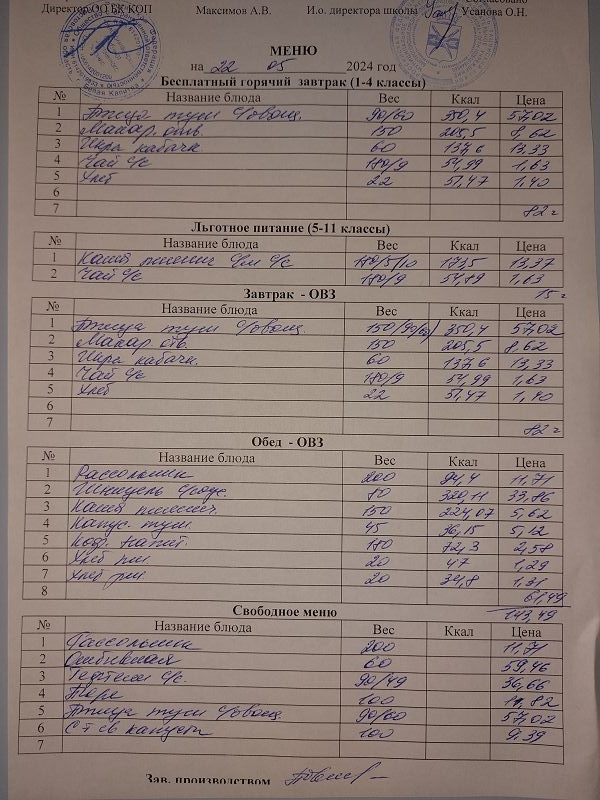 Согласовано
Директор ОО БК КОП Максимов А.В. И.о. директора школы Усанова О.Н.
МЕНЮ
на 22 05 2024 год
Бесплатный горячий завтрак (1-4 классы)
№ Название блюда Вес Ккал Цена
1 Птица туш с/овощ. 90/60 350,4 57,02
2 Макар. отв. 150 205,5 8,62
3 Икра кабачк. 60 137,6 13,33
4 Чай с/с 180/9 54,99 1,63
5 Хлеб 22 51,47 1,40
6
7 82 г
Льготное питание (5-11 классы)
№ Название блюда Вес Ккал Цена
1 Каша с/м с/с 180/5/10 173,5 13,37
2 Чай с/с 180/9 1,63
15 г
Завтрак - ОВЗ
№ Название блюда Вес Ккал Цена
1 Птица туш с/овощ 150/90/60 350,4 57,02
2 Макар отв. 150 205,5 8,62
3 Икра кабачк. 60 137,6 13,33
4 Чай с/с 180/9 54,99 1,63
5 Хлеб 22 51,47 1,40
6
7 82 г
Обед - ОВЗ
№ Название блюда Вес Ккал Цена
1 Рассольник 200 94,4 11,71
2 Шницель 80 320,11 33,86
3 Каша 150 224,07 5,62
4 Капус. туш. 45 36,15 5,12
5 Коф. напит. 180 72,3 2,58
6 Хлеб 20 47 1,29
7 Хлеб рж 20 34,8 1,31
8 61,49
143,49
Свободное меню
№ Название блюда Вес Ккал Цена
1 Рассольник 200 11,71
2 Отбивная 60 59,46
3 Тефтели с/с. 90/49 36,66
4 Пюре 100
5 Птица туш с/овощ. 90/60 57,02
6 С-т св капусты 100 9.39
7
Зав. производством